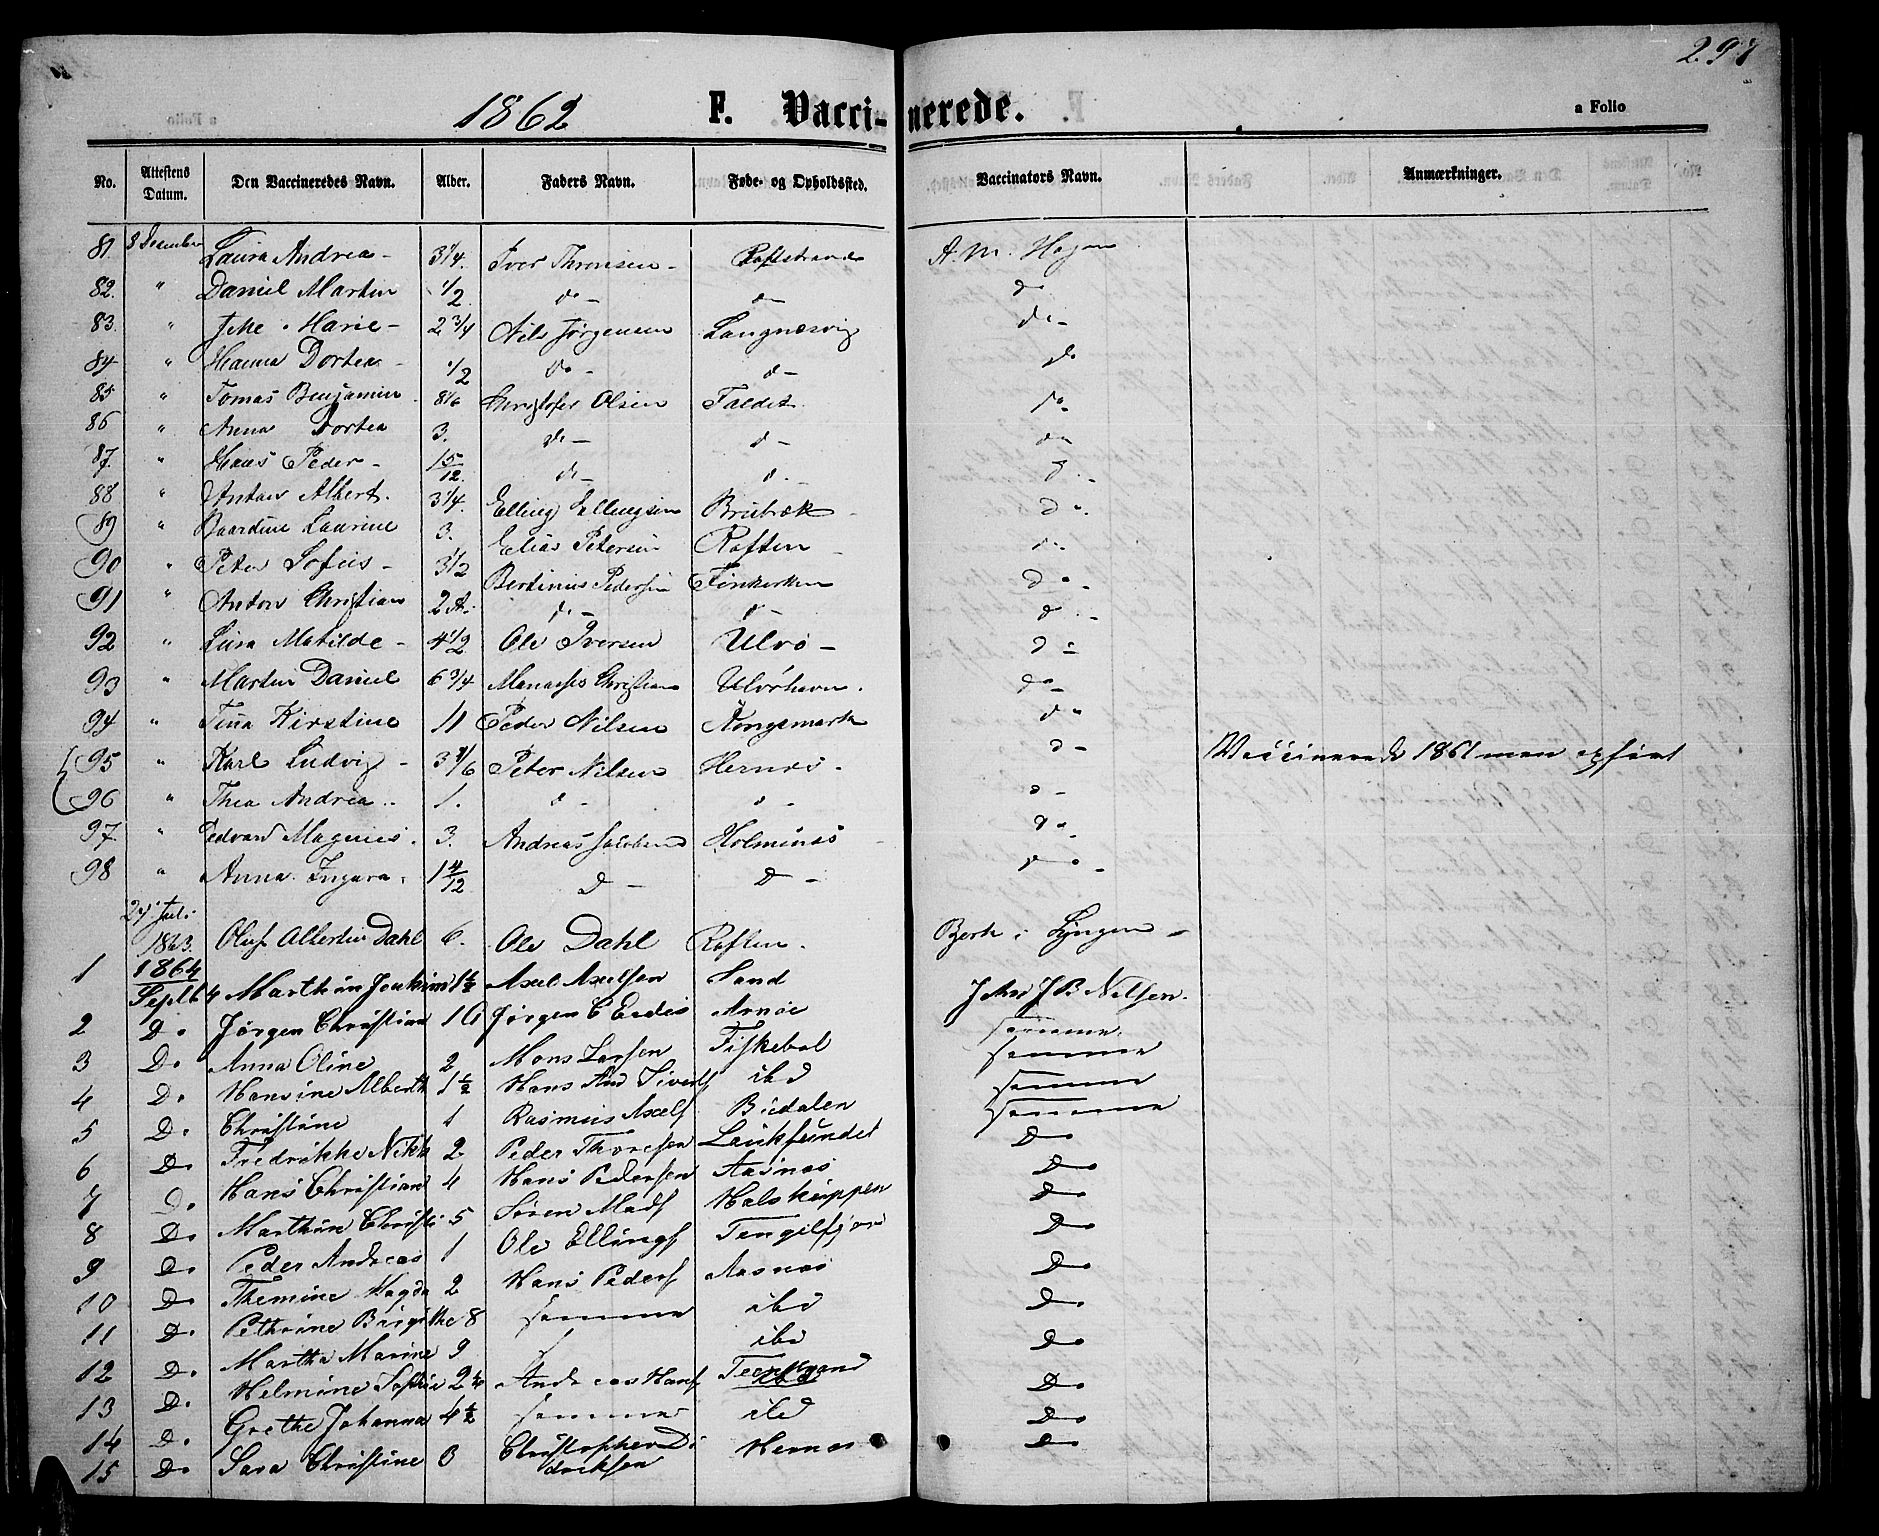 297
1862 F. Vaccinerede. a Folio
No. Attestens Datum. Den Vaccineredes Navn. Alder. Faders Navn. Føde- og Opholdssted. Vaccinators Navn. Anmærkninger.
81. 8 December Laura Andrea - 3 1/4. Iver Thronsen - Raftstrande A. M. Hagen
82. " Daniel Martin 1/2 do - do do
83. " Marie - 2 3/4 Nils Jørgensen Langnæsvig do -
84 " Hanna Dortea - 1/2 Do - d - do
85 " Tomas Benjamin 8 1/6 Christofer Olsen Faldet do
86 " Anna Dortea 3. do - d - do
87. " Hans Peder - 1 5/12. do - d. - d. -
88 " Anton Albert. 3 1/4. Elling Ellingsen Brubæk - do.
89 " Baardine Laurine 3. Elias Petersen Raften - do
90 " Peter Sofus - 3 1/2 Bertinius Pedersen Finkerken do
91 " Anton Christian 2 A. d. - d - do
92 " Lina Matilde - 4 1/2 Ole Iversen Ulvø - d -
93 " Martin Daniel 6 3/4 Manasses Christians Ulvøhavn. do
94 " Tina Kirstine 11 Peder Nilsen Kongsmark do
95 " Karl Ludvig - 3 1/6 Peter Nilsen Hernæs - d - Vaccinerede 1861 men opført
96 " Thea Andrea .. 1. d - d - d -
97. " Edvard Magnus. 3. Andreas Jacobsen Holmenæs - do
98 " Anna Ingara. 1 4/12 D - D - do -
27 Juli 1863. Oluf Albertin Dahl 6. Ole Dahl Raften. Berk i Lyngen -
1 1864 Septb 4 Marthin Joakim 1 1/2 Axel Axelsen Sand John J B Nilsen.
2 Do Jørgen Christian 10 Jørgen C Arnøe samme.
3 Do Anna Oline 2 Mons Larsen Fiskebøl samme
4 Do Hansine Alberth 1 1/2 Hans And Sivers ibd samme
5 Do Christine 1 Rasmus Axels Budalen samme
6 Do Fredrikke Nikk 2 Peder Thoresen Laukfundet Do
7 Do Hans Christian 4 Hans Pedersen Aasnæs Do
8 Do Marthin Christi 5 Søren Mads Halskuppen Do
9 Do Peder Andreas 1 Ole Ellings Tengelfjord Do
10 Do Themine Magda 2 Hans Peders Aasnæs Do
11 Do Pethrine Birgitthe 8 samme ibd Do
12 Do Martha Marine 9 ibd Do
13 Do Helmine Sophie 2 Andreas Hans Do
14 Do Grethe Johanna 4 1/2 samme ibd Do
15 Do Sara Christine 3 Christopher Didriksen Hernæs Do